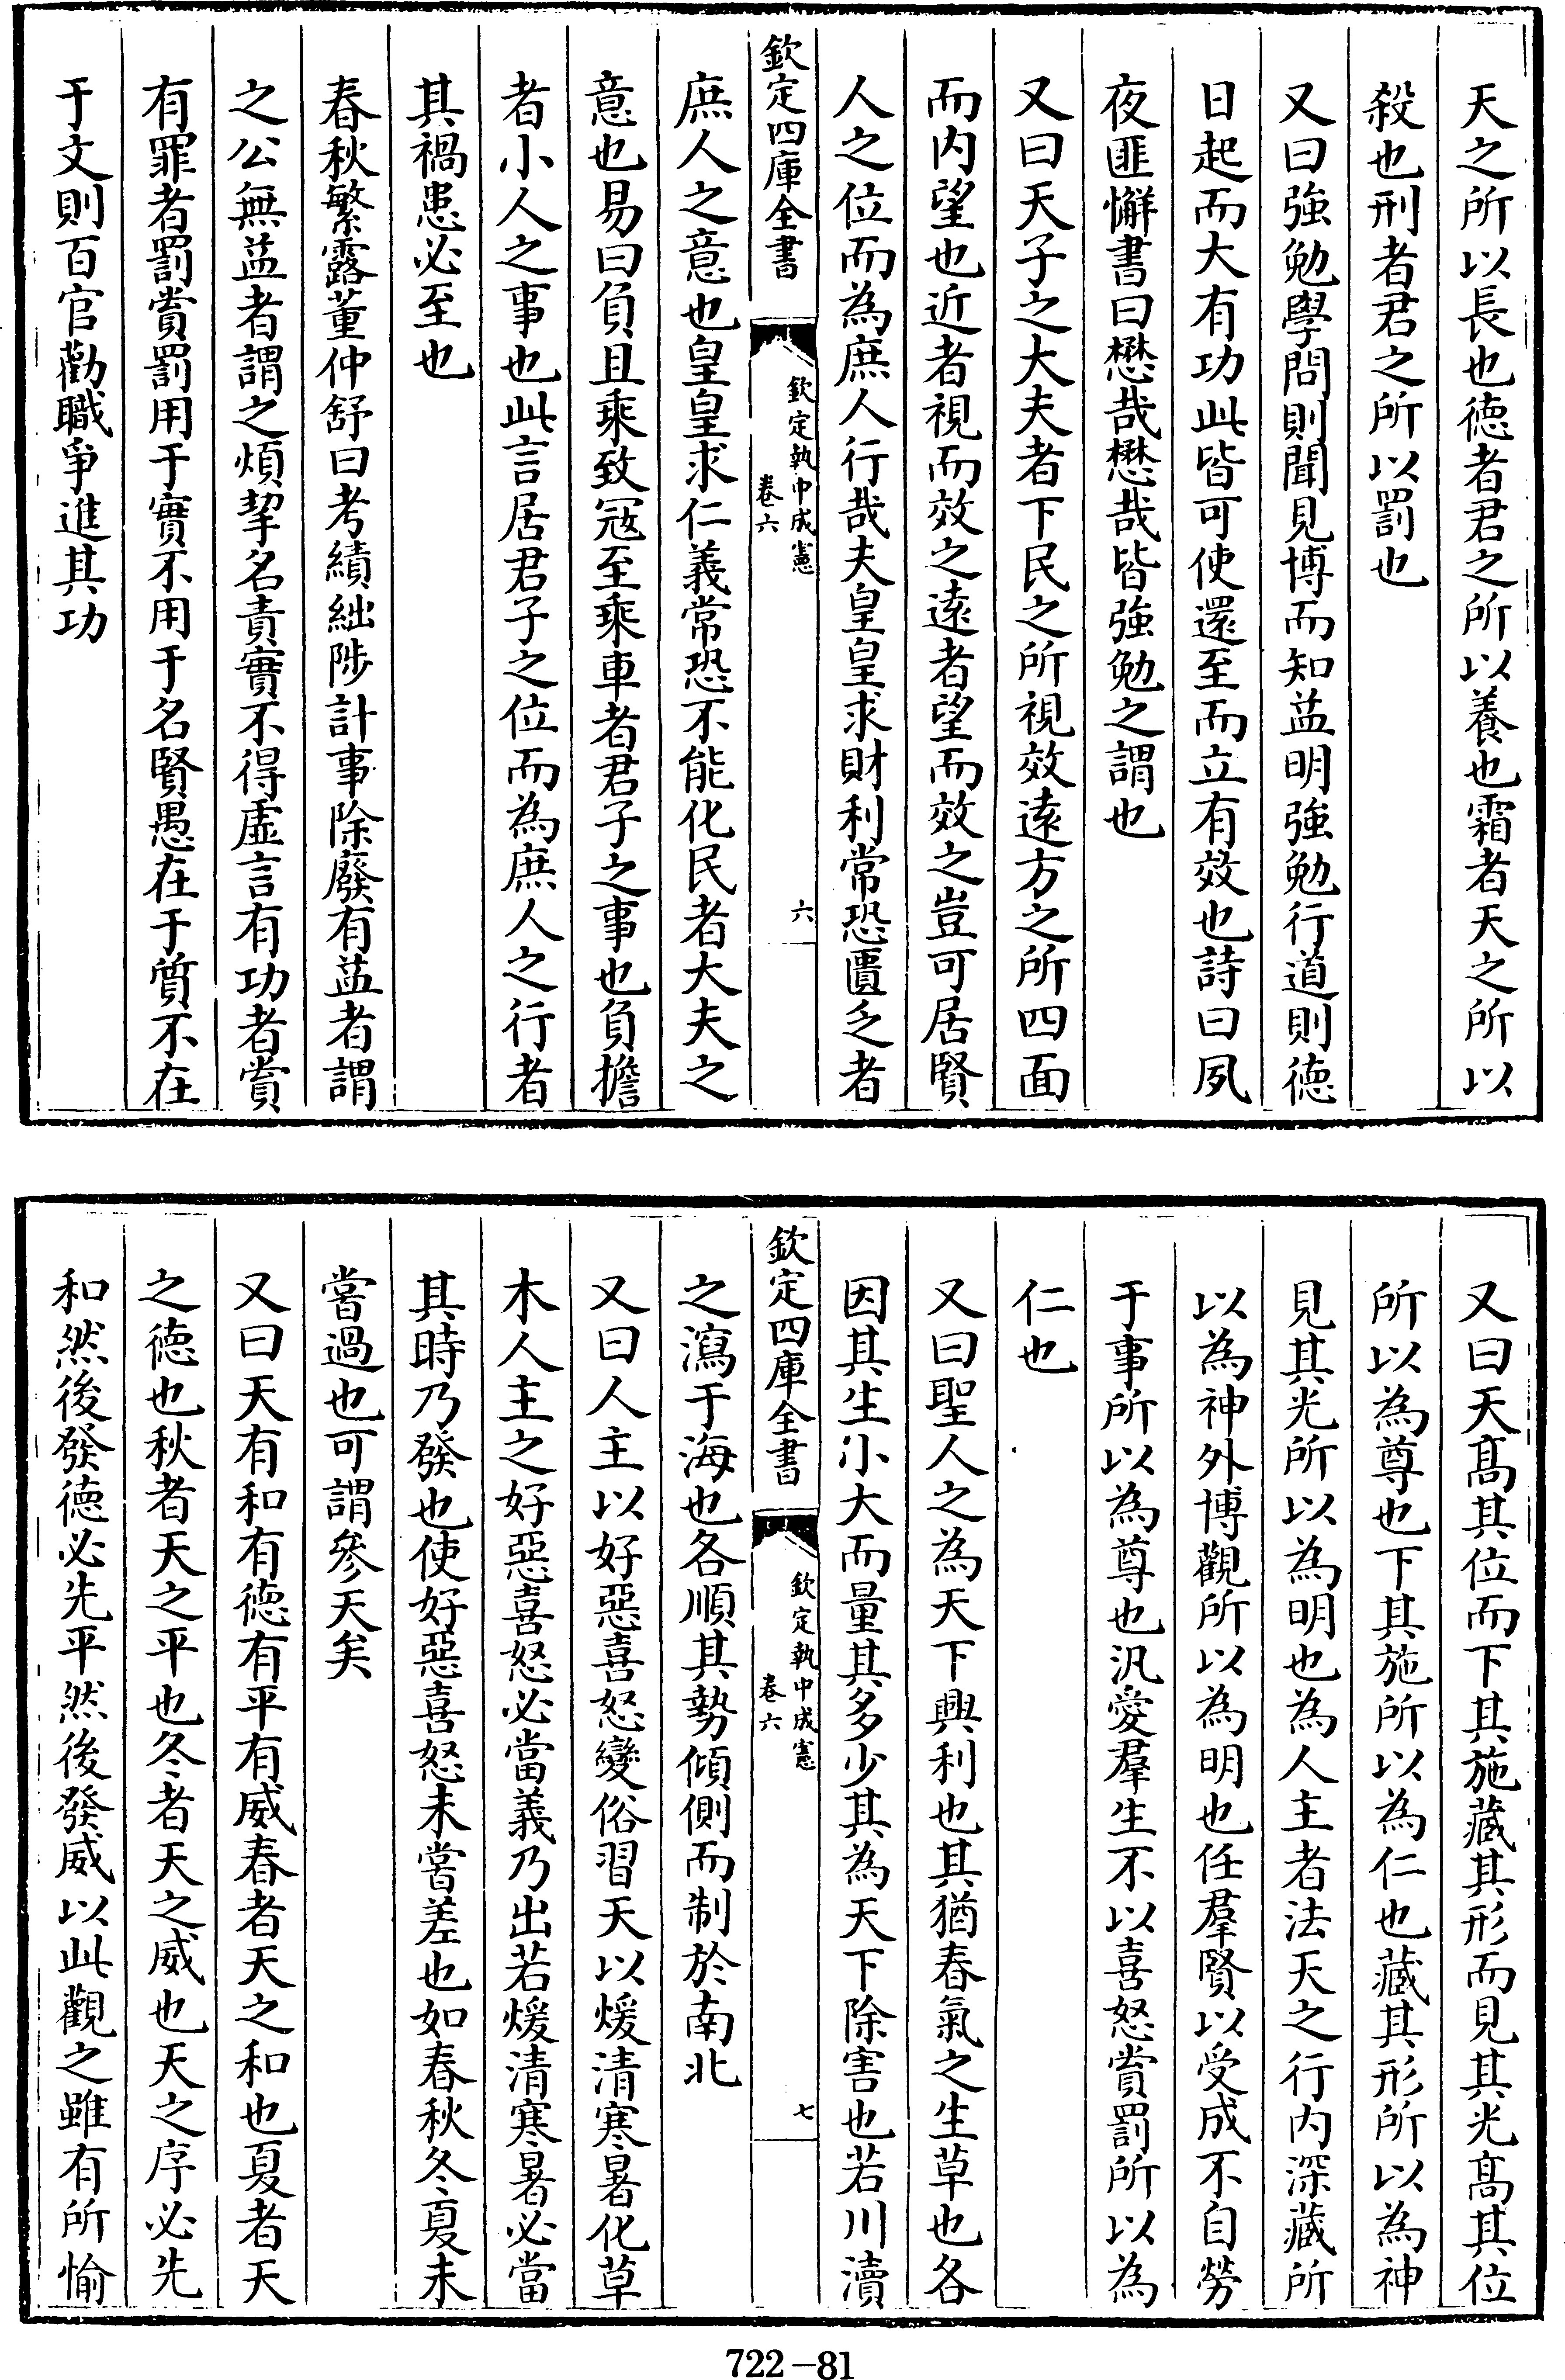 天之所以長也徳者君之所以養也霜者天之所以
殺也刑者君之所以罰也
又曰強勉學問則聞見博而知益明強勉行道則徳
日起而大有功此皆可使還至而立有效也詩曰夙
夜匪懈書曰懋哉懋哉皆強勉之謂也
又曰天子之大夫者下民之所視效逺方之所四面
而内望也近者視而效之逺者望而效之豈可居賢
人之位而為庶人行哉夫皇皇求財利常恐匱乏者
欽定四庫全書
欽定執中成憲
卷六
六
庶人之意也皇皇求仁義常恐不能化民者大夫之
意也易曰負且乘致冦至乘車者君子之事也負擔
者小人之事也此言居君子之位而為庶人之行者
其禍患必至也
春秋繁露董仲舒曰考績絀陟計事除廢有益者謂
之公無益者謂之煩挈名責實不得虚言有功者賞
有罪者罰賞罰用于實不用于名賢愚在于質不在
于文則百官勸職爭進其功
又曰天髙其位而下其施藏其形而見其光髙其位
所以為尊也下其施所以為仁也藏其形所以為神
見其光所以為明也為人主者法天之行内深藏所
以為神外博觀所以為明也任羣賢以受成不自勞
于事所以為尊也汎愛羣生不以喜怒賞罰所以為
仁也
又曰聖人之為天下興利也其猶春氣之生草也各
因其生小大而量其多少其為天下除害也若川瀆
欽定四庫全書
欽定執中成憲
卷六
七
之瀉于海也各順其勢傾側而制於南北
又曰人主以好惡喜怒變俗習天以煖清寒暑化草
木人主之好惡喜怒必當義乃出若煖清寒暑必當
其時乃發也使好惡喜怒未嘗差也如春秋冬夏未
嘗過也可謂參天矣
又曰天有和有徳有平有威春者天之和也夏者天
之徳也秋者天之平也冬者天之威也天之序必先
和然後發徳必先平然後發威以此觀之雖有所愉
722-81